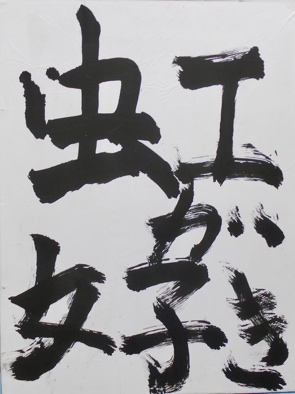 虹が
好き